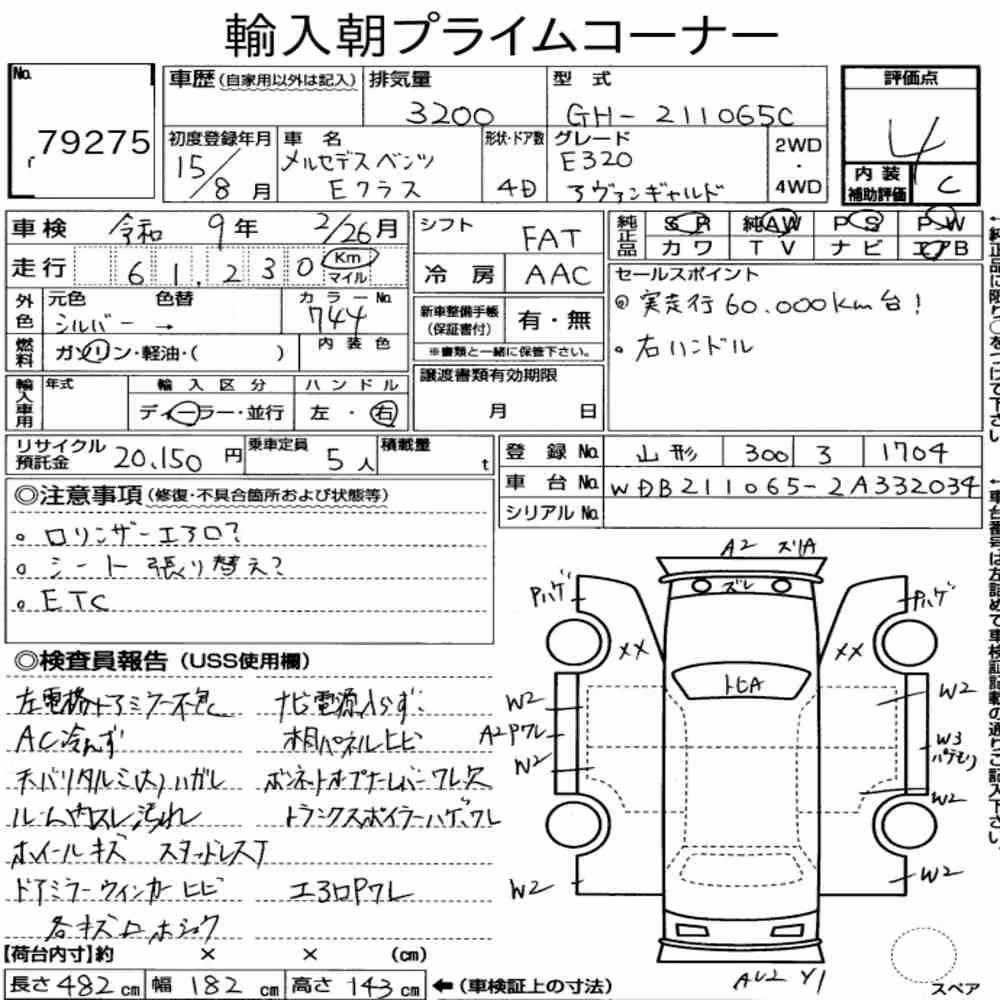 輸入朝プライムコーナー
No.
79275
車歴(自家用以外は記入)
排気量
3200
型式
GH-211065C
評価点
4
内装補助評価
C
初度登録年月
15/8月
車名
メルセデスベンツ
Eクラス
形状・ドア数
4D
グレード
E320
アヴァンギャルド
2WD・4WD
車検 令和 9年 2/26月
走行 61,230 Km マイル
シフト
FAT
冷房 AAC
純正品
SR 純AW PS PW
カワ TV ナビ エアB
外色
元色 色替
シルバー →
カラーNo.
744
燃料
ガソリン・軽油・( )
内装色
新車整備手帳(保証書付)
有・無
※書類と一緒に保管下さい。
セールスポイント
◎実走行60.000Km台!
・右ハンドル
輸入車用
年式
輸入区分
ディーラー・並行
ハンドル
左・右
譲渡書類有効期限
月 日
リサイクル預託金 20,150円
乗車定員 5人
積載量 t
登録No. 山形 300 3 1704
車台No. WDB211065-2A332034
シリアルNo.
◎注意事項(修復・不具合箇所および状態等)
。ロリンザーエアロ?
。シート張り替え?
。ETC
◎検査員報告(USS使用欄)
左電格ドアミラー不良 ナビ電源入らず
AC冷えず 木目パネルヒビ
天バリタルミ(大)ハガレ ボンネットオープナーレバーワレ欠
ルーム内スレ汚れ トランクスポイラーハゲ、ワレ
ホイールキズ スタッドレスT
ドアミラーウィンカーヒビ エアロPワレ
各キズ凹ホシュウ
A2 スリA
ズレ
Pハゲ
Pハゲ
××
××
トビA
W2
W2
A2Pワレ
W3
パテモリ
W2
W2
W2
W2
AU2 Y1
スペア
【荷台内寸】約 × × (cm)
長さ482cm 幅182cm 高さ143cm ←(車検証上の寸法)
←純正品に限り○をつけて下さい。
←車台番号は左詰めで車検証記載の通りご記入下さい。